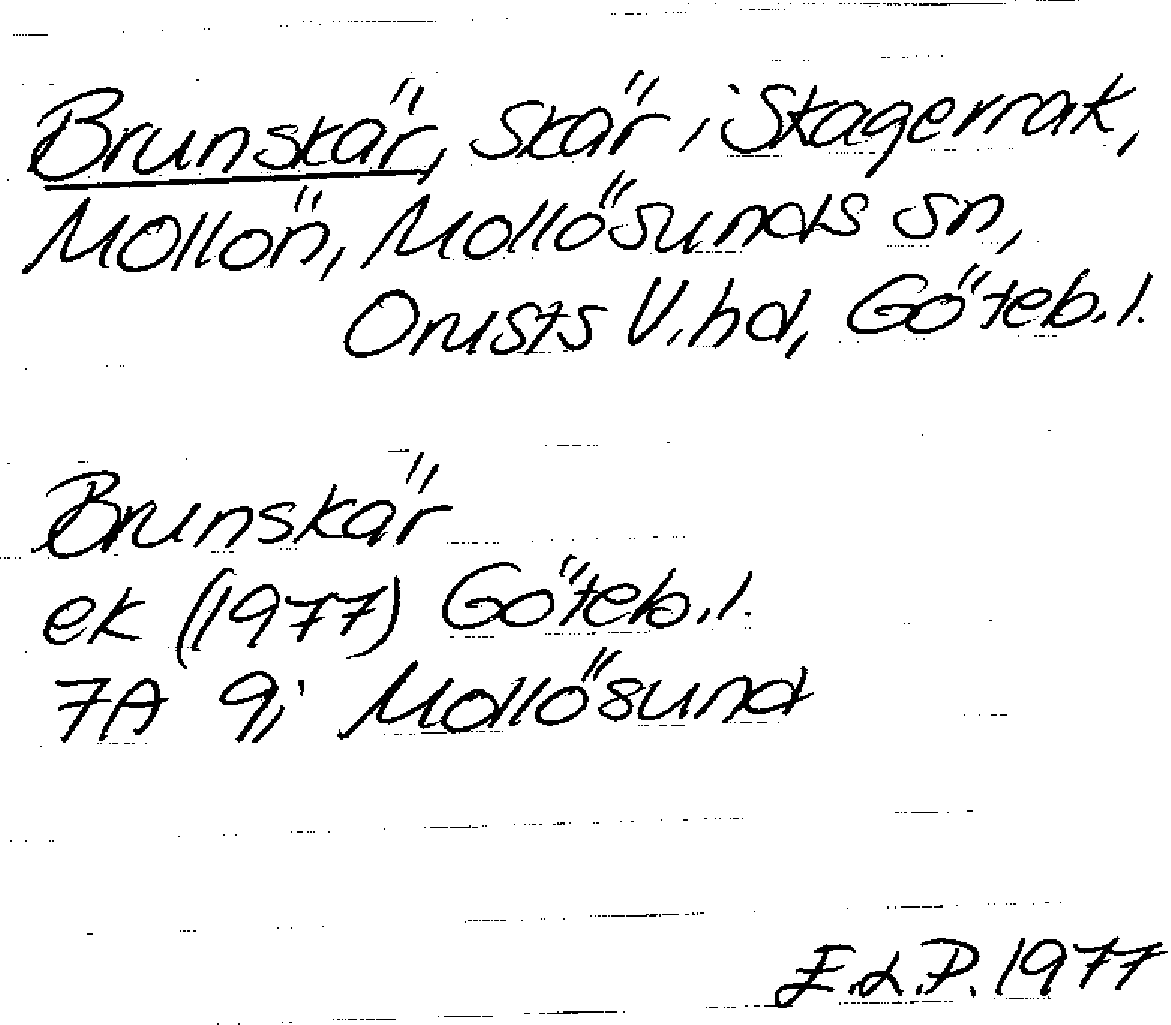 Brunskär, skär i Skagerrak,
Mollön, Mollösunds sn,
Orusts V. hd, Göteb. l.
Brunskär
ek (1977) Göteb. l.
7A 9i Mollösund
E.L.P. 1977